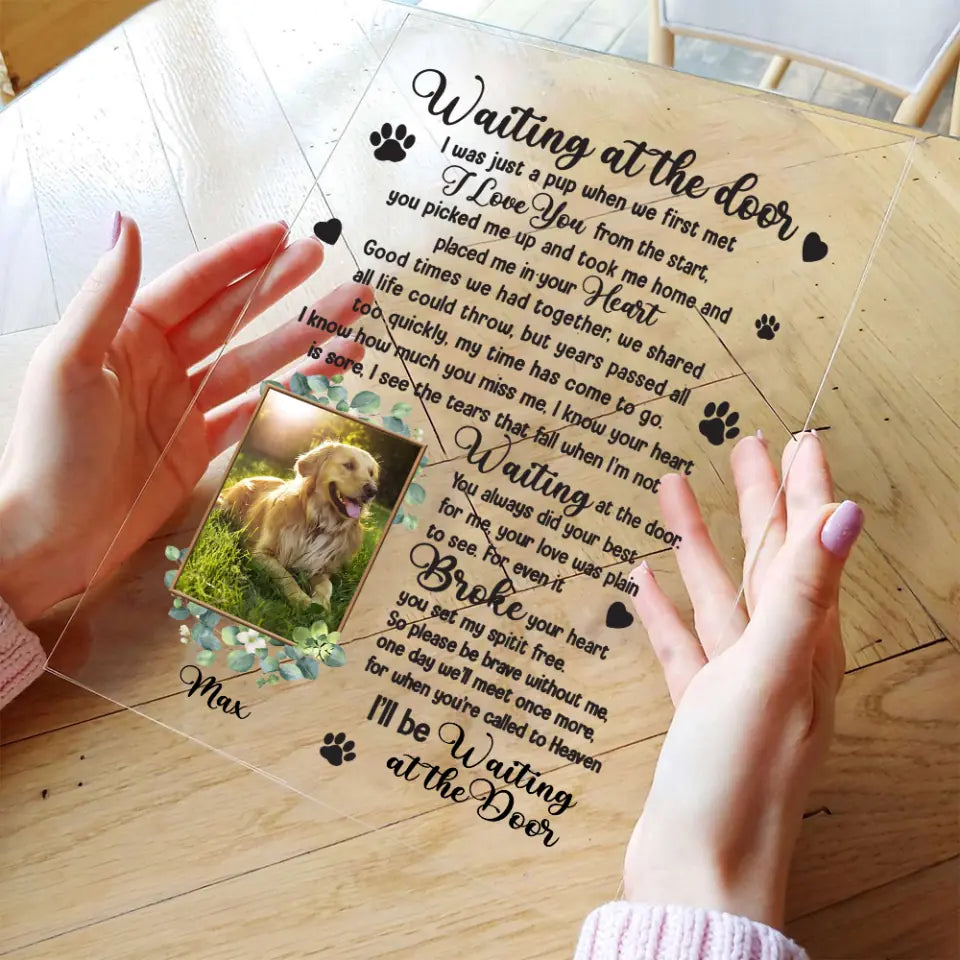 Waiting at the door
I was just a pup when we first met
I Love You from the start,
you picked me up and took me home and
placed me in your Heart
Good times we had together, we shared
all life could throw, but years passed all
too quickly, my time has come to go.
I know how much you miss me, I know your heart
is sore, I see the tears that fall when I'm not
Waiting at the door.
You always did your best
for me, your love was plain
to see. For even it
Broke your heart
you set my spitit free.
So please be brave without me,
one day we'll meet once more,
for when you're called to Heaven
I'll be Waiting
at the Door
Max